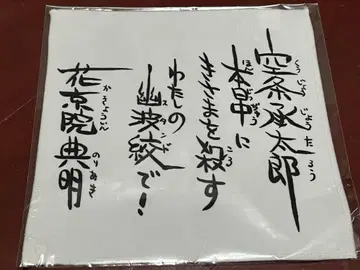 空条承太郎
くうじょうじょうたろう
本日中に
ほんじつちゅう
きさまを殺す
ころ
わたしの
幽波紋で！
スタンド
花京院典明
かきょういんのりあき